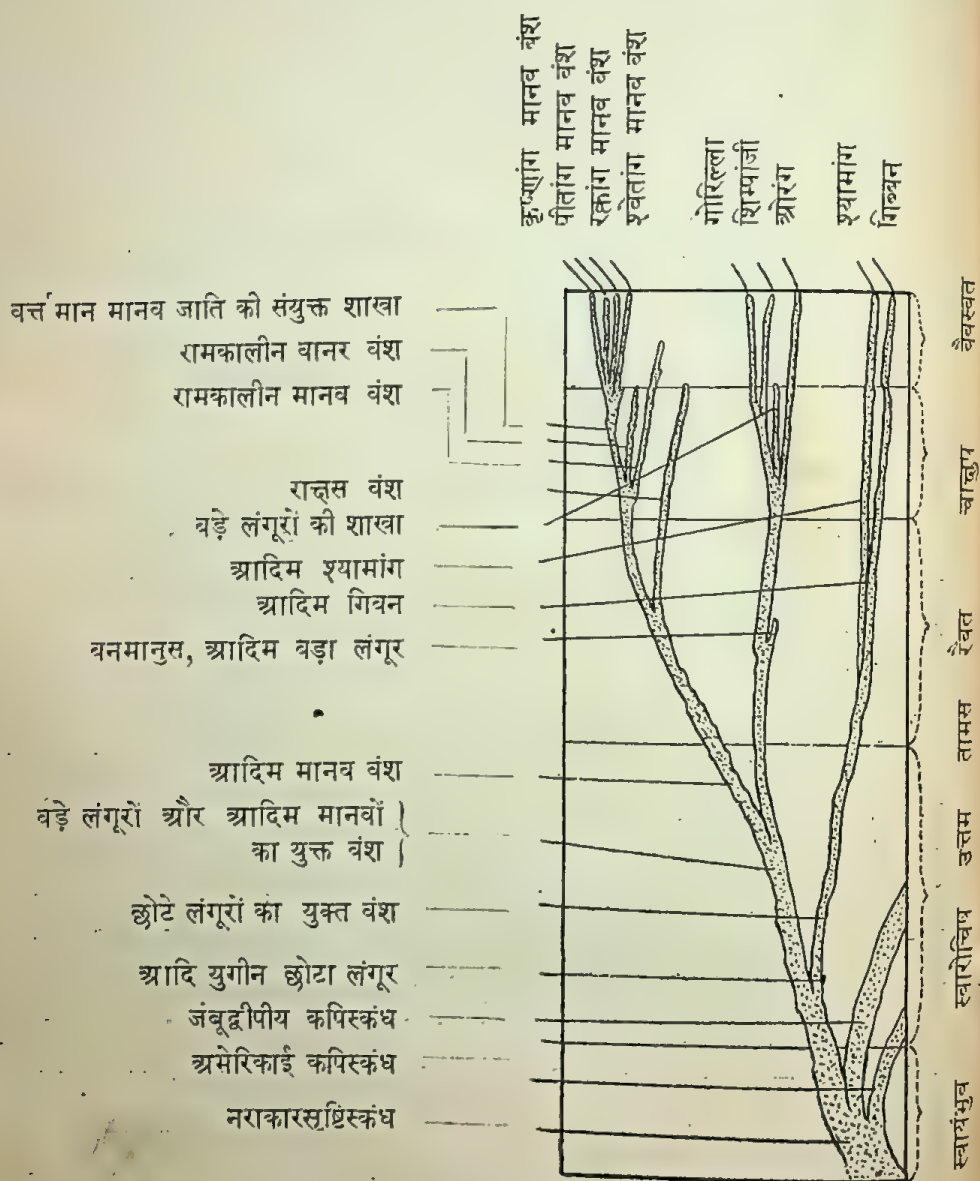 कृष्णांग मानव वंश
पीतांग मानव वंश
रक्तांग मानव वंश
श्वेतांग मानव वंश
गोरिल्ला
शिम्पांजी
ओरंग
श्यामांग
गिब्बन
वर्त्तमान मानव जाति की संयुक्त शाखा
रामकालीन वानर वंश
रामकालीन मानव वंश
राक्षस वंश
बड़े लंगूरों की शाखा
आदिम श्यामांग
आदिम गिबन
वनमानुस, आदिम बड़ा लंगूर
आदिम मानव वंश
बड़े लंगूरों और आदिम मानवों }
का युक्त वंश }
छोटे लंगूरों का युक्त वंश
आदि युगीन छोटा लंगूर
जंबूद्वीपीय कपिस्कंध
अमेरिकाई कपिस्कंध
नराकारसृष्टिस्कंध
वैवस्वत
चाक्षुप
रैवत
तामस
उत्तम
स्वारोचिष
स्वायंभुव